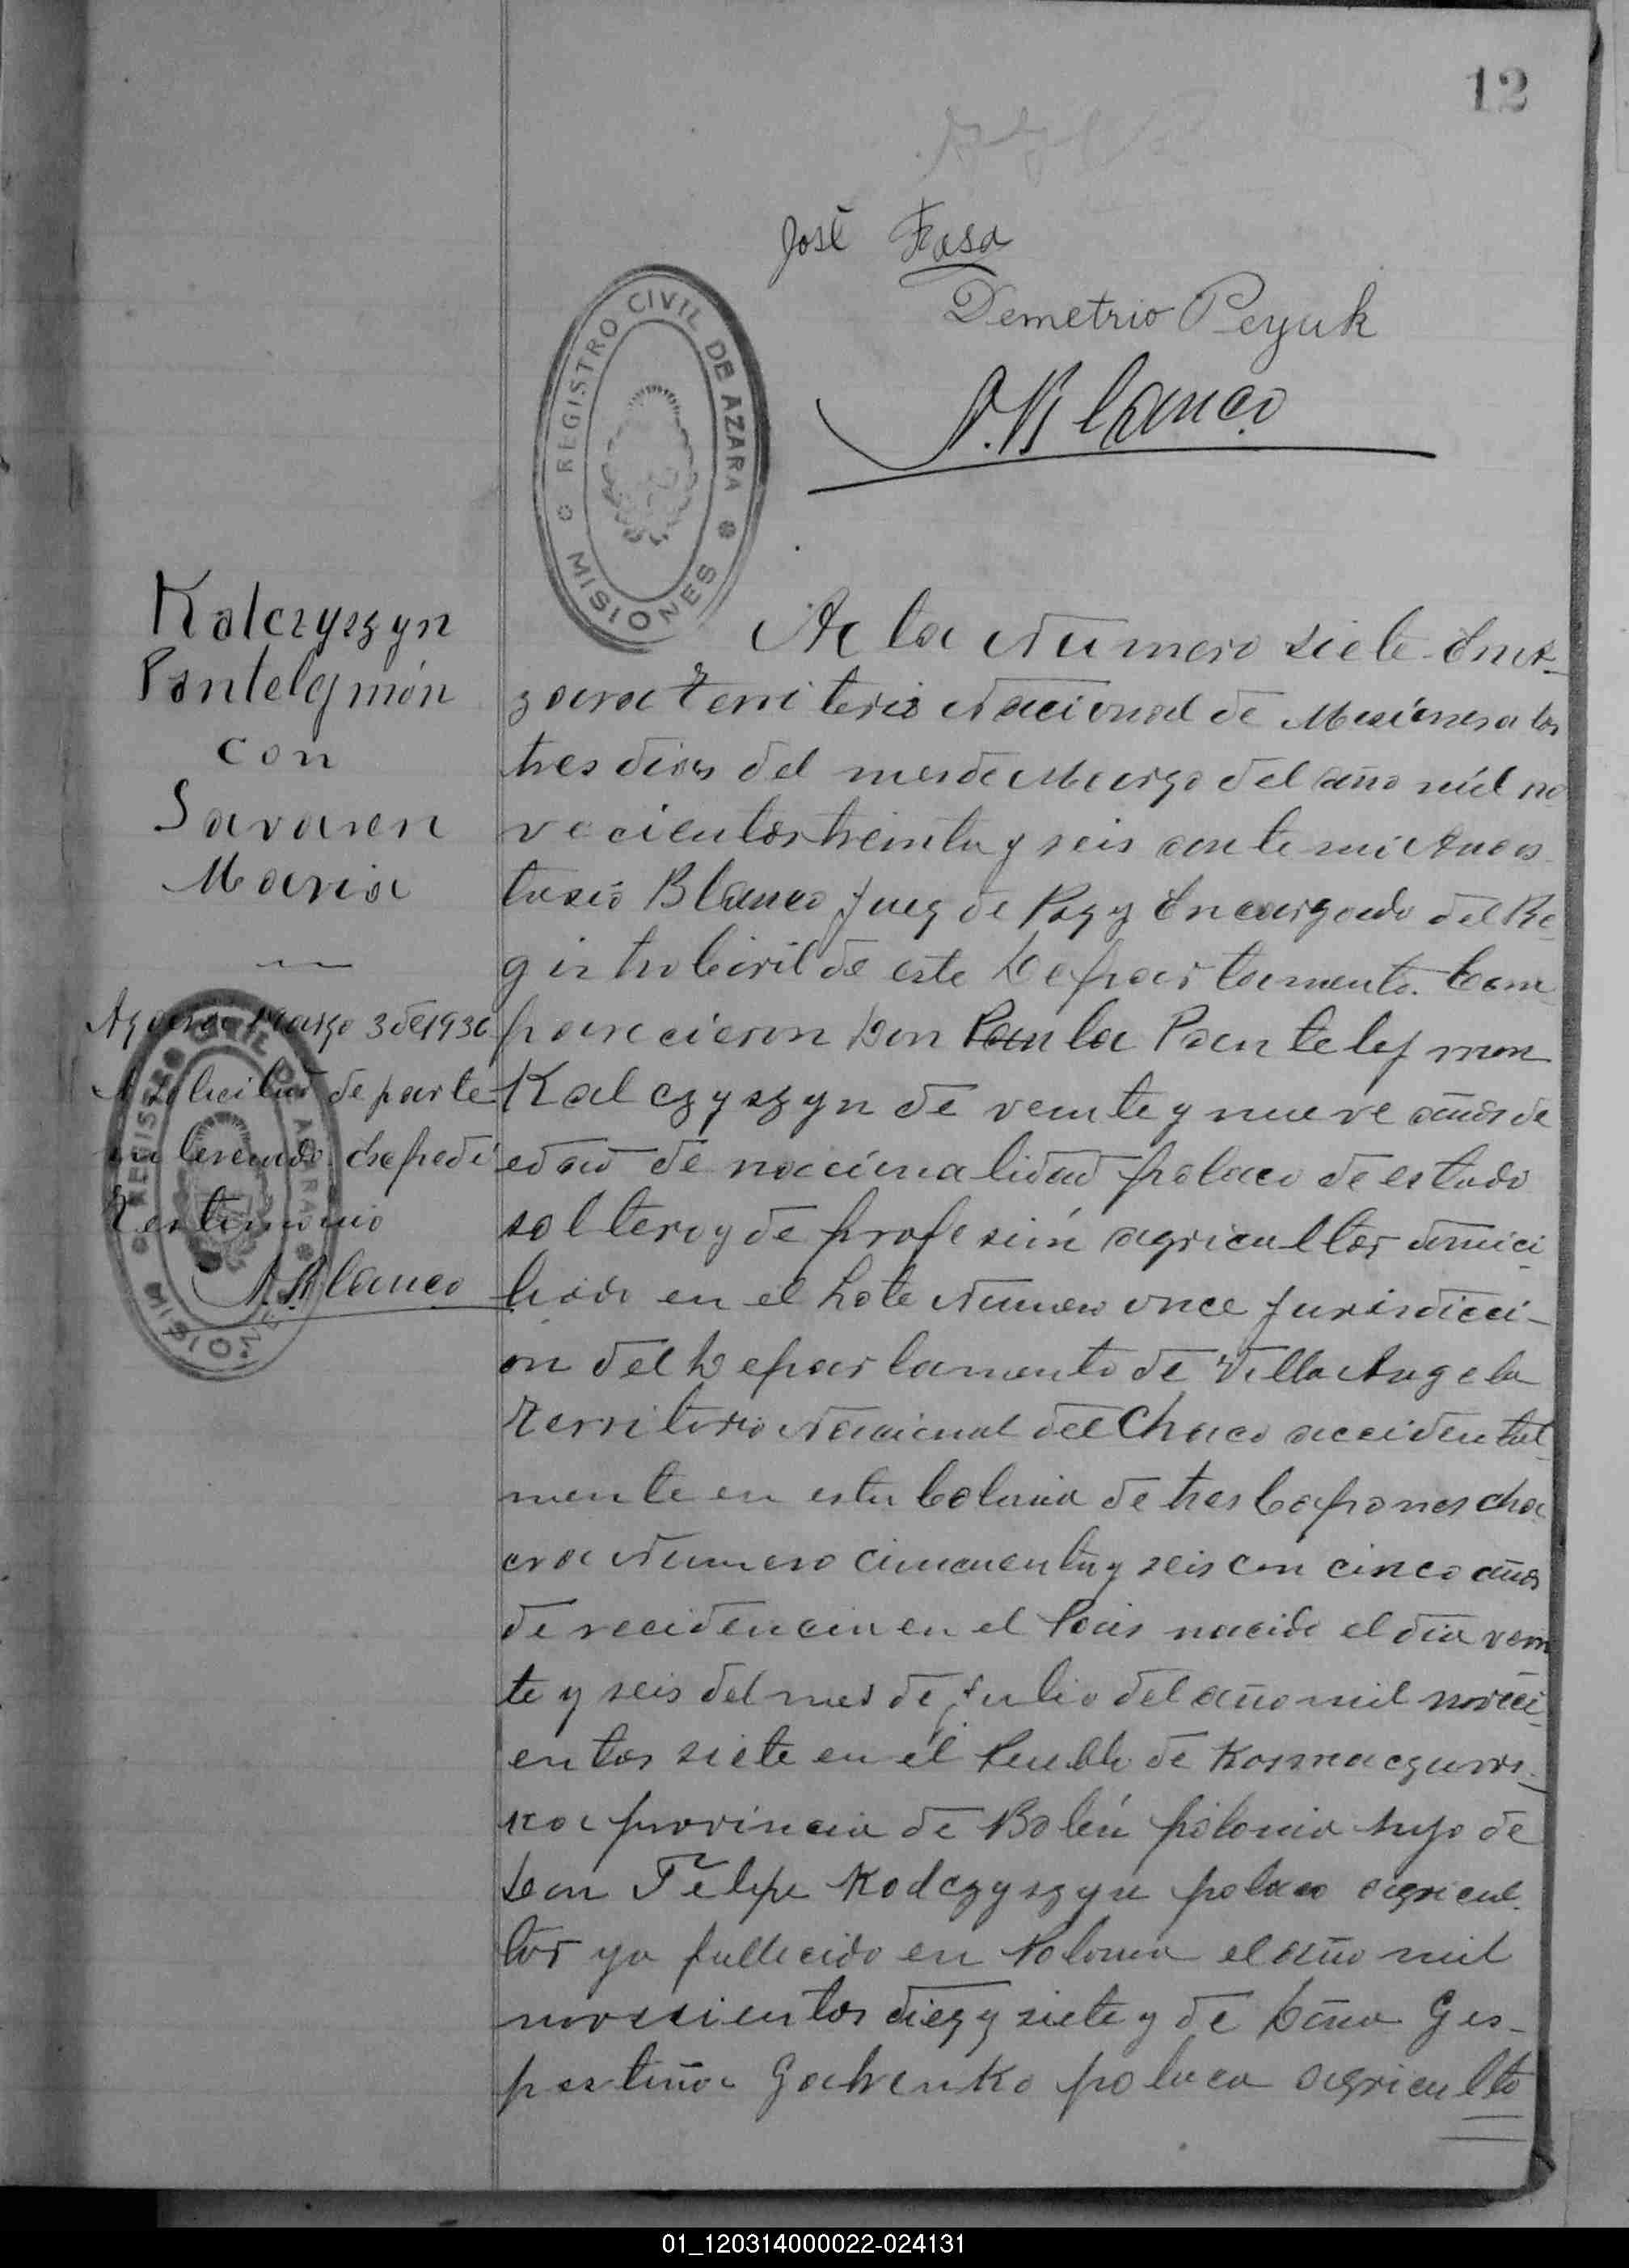 12
José Fasa
Demetrio Peyuk
A. Blanco
REGISTRO CIVIL DE AZARA
MISIONES
Kalczyszyn
Pantelejmón
con
Savaren
Maria
Azara Marzo 3 de 1936
A solicitud de parte
interesada Expedi
Testimonio
A. Blanco
REGISTRO CIVIL DE AZARA
MISIONES
Acta Número siete En A-
zara Territorio Nacional de Misiones a los
tres dias del mes de Marzo del año mil no
vecientos treinta y seis ante mi Anas
tasio Blanco Juez de Paz y Encargado del Re
gistro Civil de este Departamento. Com
parecieron Don Pantelejmon
Kalczyszyn de veinte y nueve años de
edad de nacionalidad polaco de estado
soltero y de profesión agricultor domici
liado en el Lote Numero once Jurisdicci-
on del Departamento de Villa Angela
Territorio Nacional del Chaco accidental
mente en esta Colonia de tres Capones cha
cra Numero cincuenta y seis con cinco años
de recidencia en el Pais nacido el dia vein
te y seis del mes de Julio del año mil noveci
entos siete en el Pueblo de
provincia de Bolén polonia hijo de
Don Felipe Kodczyszyn polaco agricul
tor ya fallecido en Polonia el año mil
novecientos diez y siete y de Doña Ges-
polaca agriculto
01_120314000022-024131